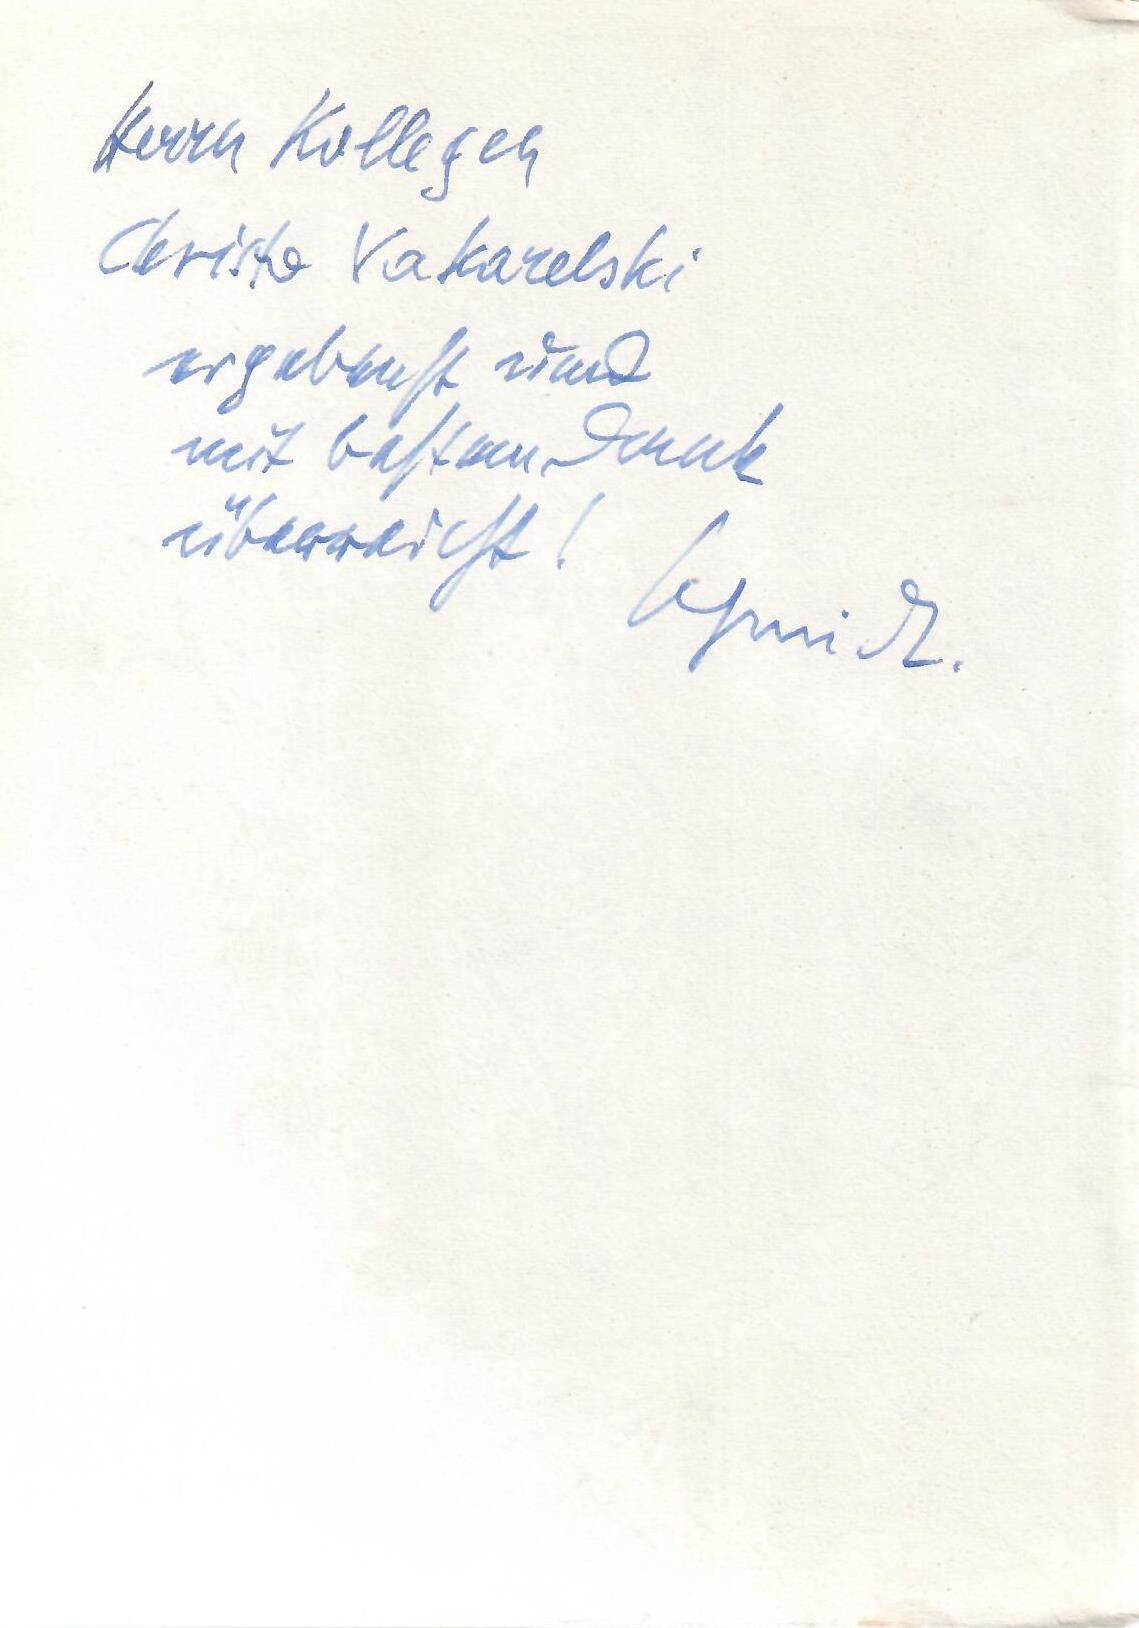 Herrn Kollegen
Christo Vakarelski
ergebenst und
mit bestem Dank
überreicht!
Schmidt.